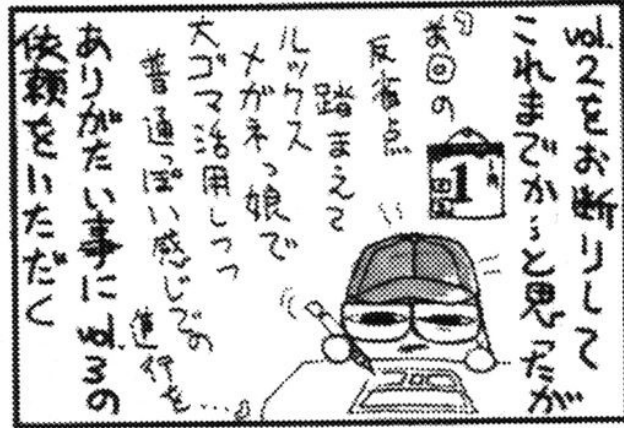 vol.2をお断りして
これまでか…と思ったが
前回の
反省点
踏まえて
ルックス
メガネっ娘で
大ゴマ活用しつつ
普通っぽい感じでの
進行を…
ありがたい事にvol.3の
依頼をいただく
1